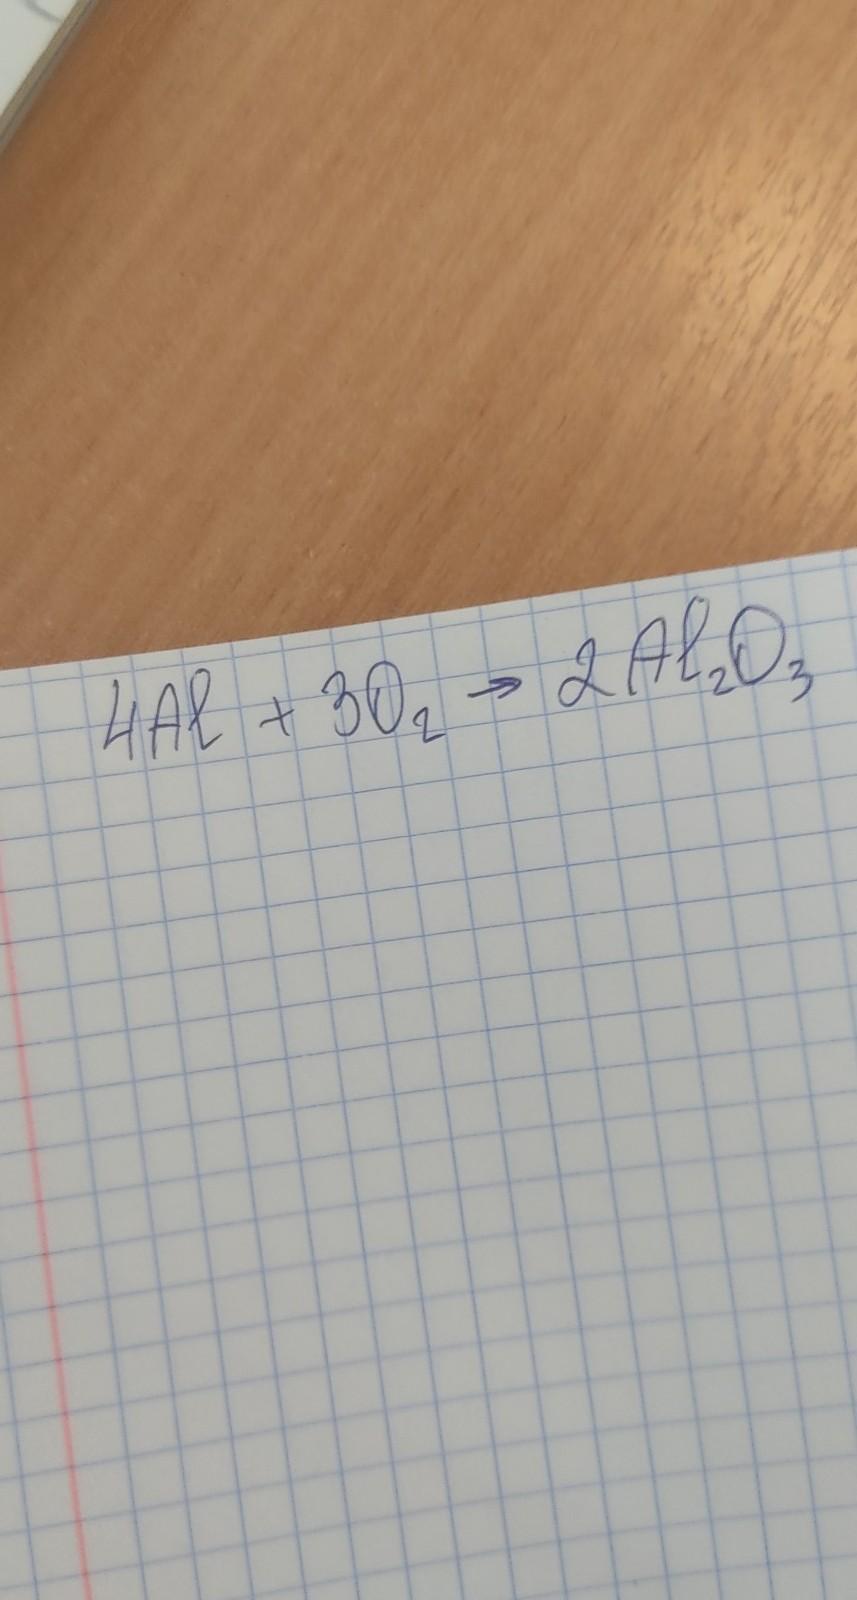 4Al + 3O₂ → 2Al₂O₃